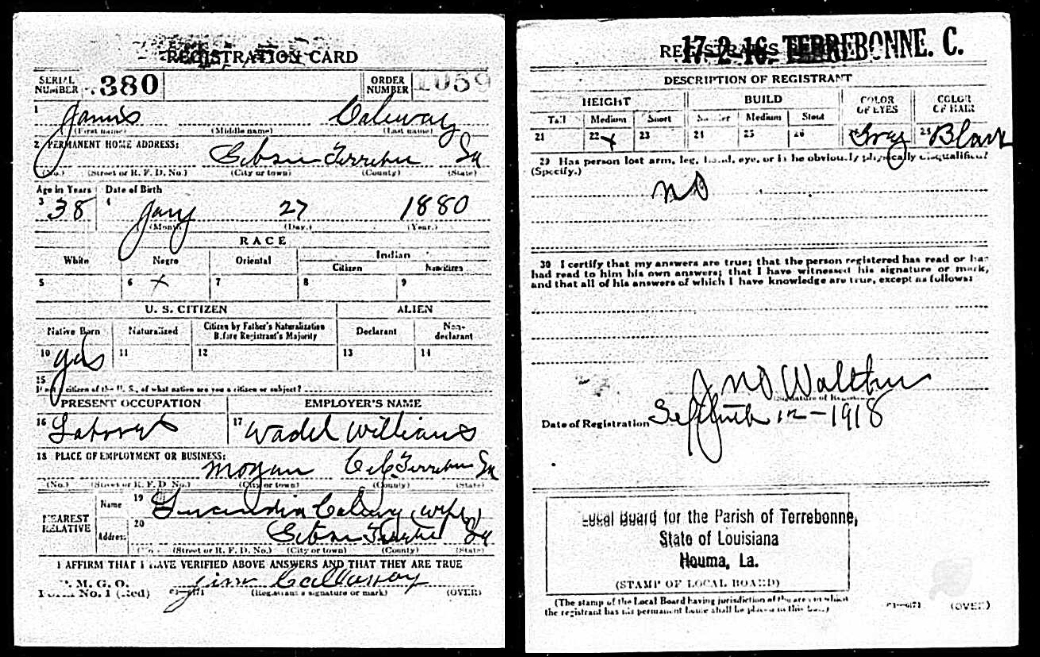 REGISTRATION CARD
SERIAL NUMBER 380 ORDER NUMBER 1059
1 James Caleway
(First name) (Middle name) (Last name)
2 PERMANENT HOME ADDRESS: Gibson Terrebne La
(No.) (Street or R. F. D. No.) (City or town) (County) (State)
Age in Years Date of Birth
3 38 4 Jany 27 1880
(Month) (Day.) (Year.)
RACE
White Negro Oriental Indian
Citizen Noncitizen
5 6 x 7 8 9
U. S. CITIZEN ALIEN
Native Born Naturalized Citizen by Father's Naturalization Before Registrant's Majority Declarant Non-declarant
10 yes 11 12 13 14
15 If not a citizen of the U. S., of what nation are you a citizen or subject?
PRESENT OCCUPATION EMPLOYER'S NAME
16 Laborer 17 Wadel Williams
18 PLACE OF EMPLOYMENT OR BUSINESS:
Mogan Terrebne La
(No.) (Street or R. F. D. No.) (City or town) (County) (State)
NEAREST RELATIVE Name 19 Lucindia Calewy (wife)
Address 20 Gibson Terrebne La
(No.) (Street or R. F. D. No.) (City or town) (County) (State)
I AFFIRM THAT I HAVE VERIFIED ABOVE ANSWERS AND THAT THEY ARE TRUE
P. M. G. O.
Form No. 1 (Red) Jim Callaway
(Registrant's signature or mark) (OVER)
REGISTRAR'S 17-2-16. TERREBONNE. C.
DESCRIPTION OF REGISTRANT
HEIGHT BUILD COLOR OF EYES COLOR OF HAIR
Tall Medium Short Slender Medium Stout
21 22 x 23 24 25 26 Gray 28 Black
29 Has person lost arm, leg, hand, eye, or is he obviously physically disqualified?
(Specify.)
no
30 I certify that my answers are true; that the person registered has read or has
had read to him his own answers; that I have witnessed his signature or mark,
and that all of his answers of which I have knowledge are true, except as follows:
(Signature of Registrar)
Date of Registration September 12-1918
Local Board for the Parish of Terrebonne,
State of Louisiana
Houma, La.
(STAMP OF LOCAL BOARD)
(The stamp of the Local Board having jurisdiction of the area in which
the registrant has his permanent home shall be placed in this box.)
(OVER)